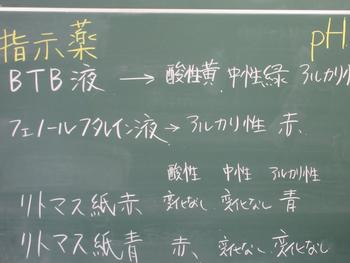 指示薬 pH
BTB液 → 酸性黄 中性緑 アルカリ性
フェノールフタレイン液→アルカリ性 赤
酸性 中性 アルカリ性
リトマス紙赤 変化なし 変化なし 青
リトマス紙青 赤 変化なし 変化なし